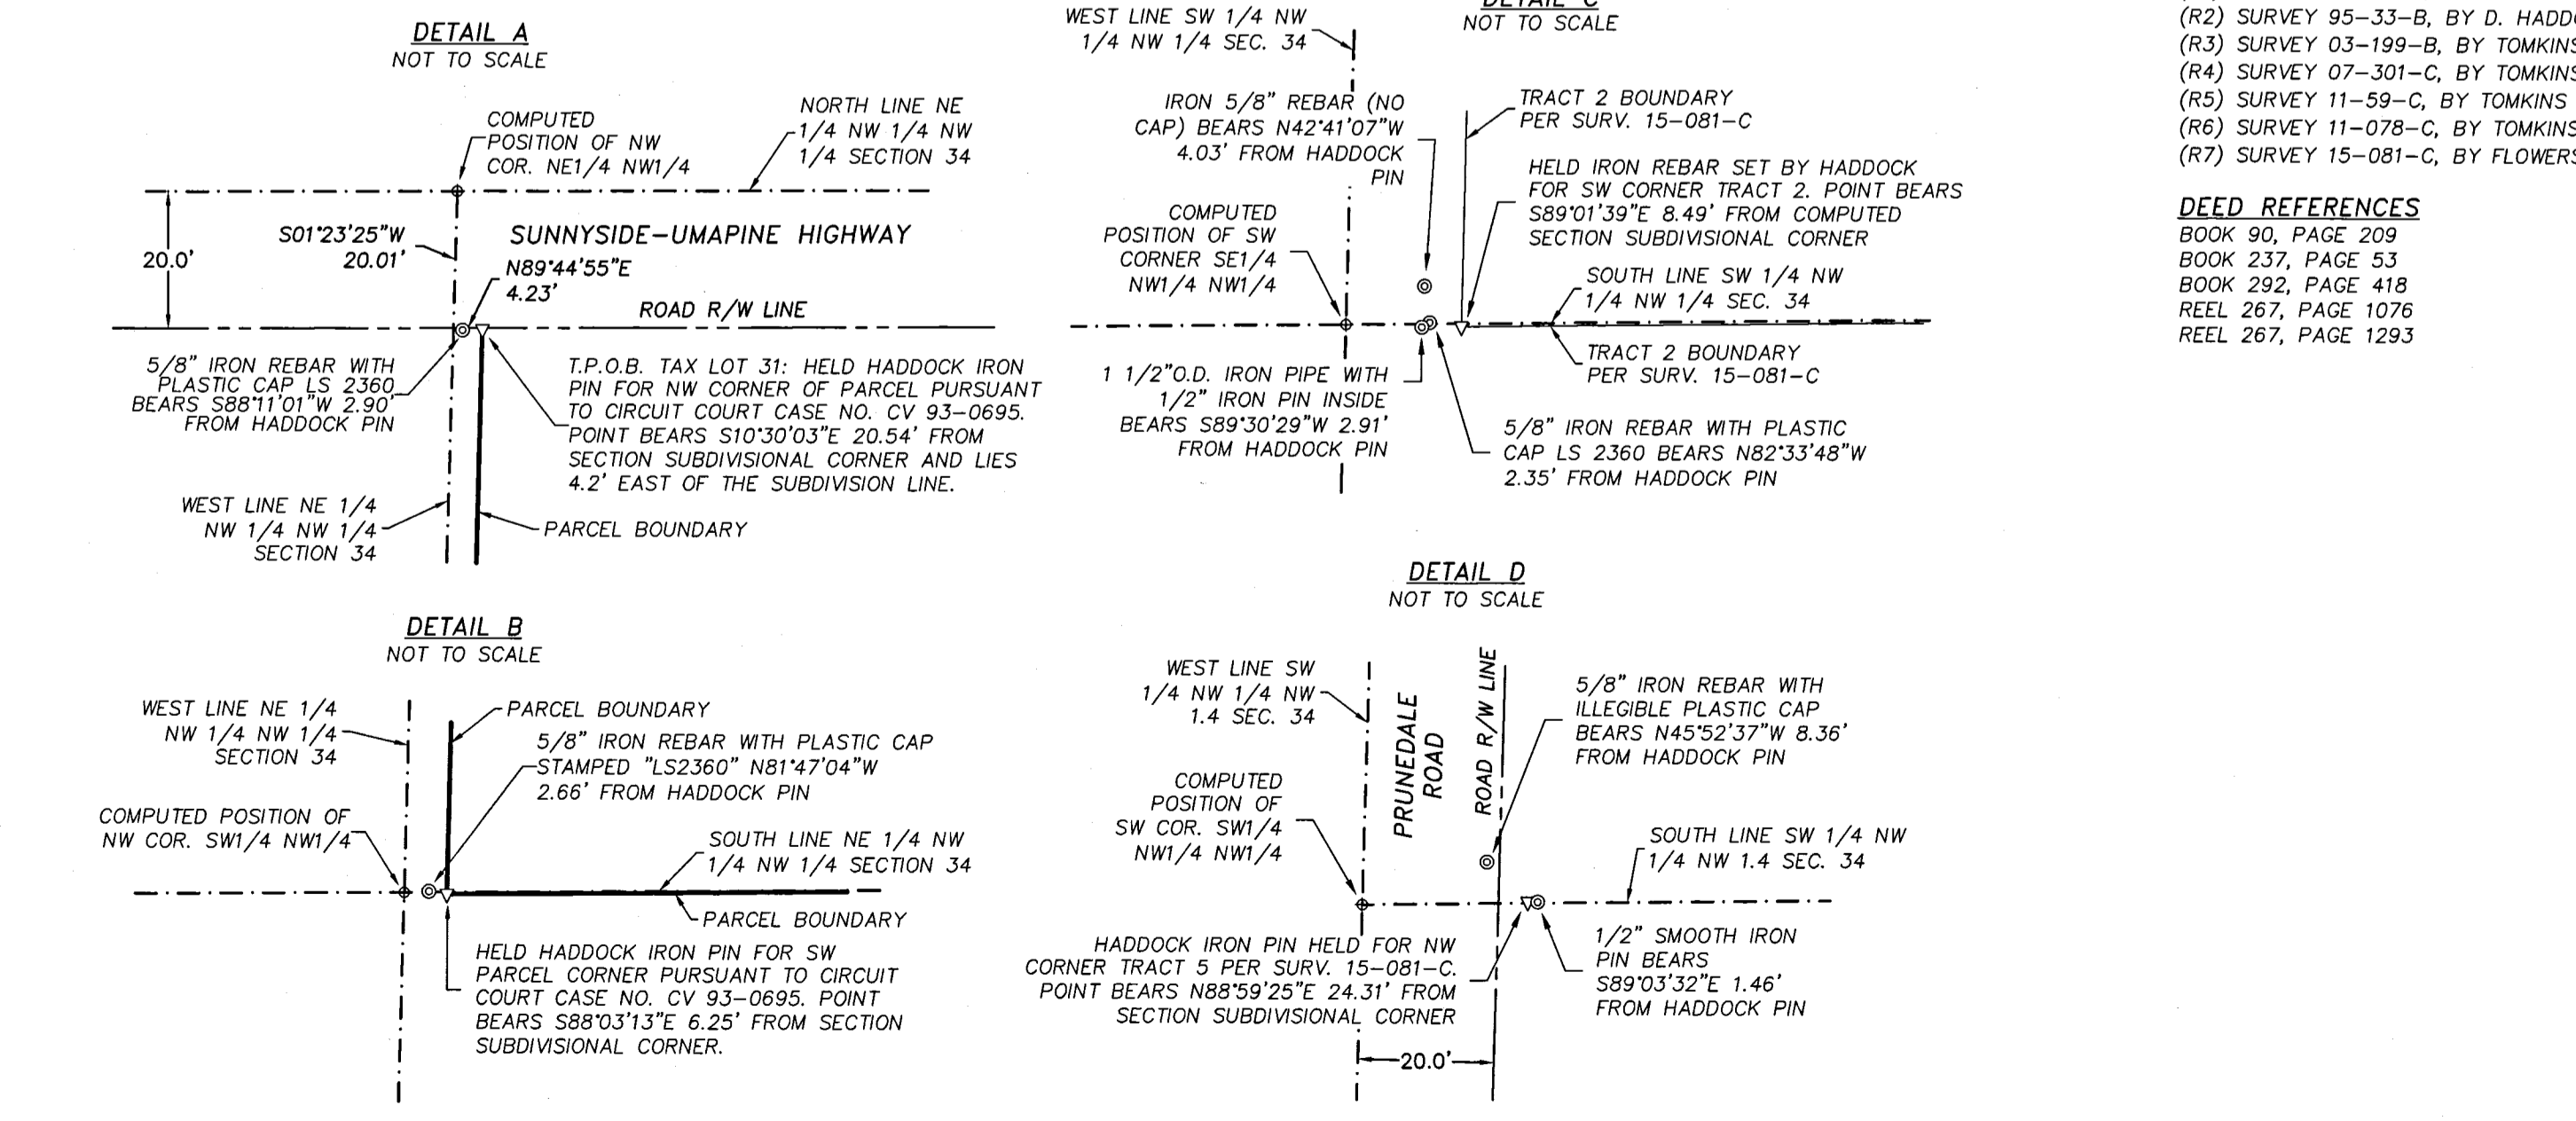 DETAIL A
NOT TO SCALE
COMPUTED
POSITION OF NW
COR. NE1/4 NW1/4
NORTH LINE NE
1/4 NW 1/4 NW
1/4 SECTION 34
20.0'
S01°23'25"W
20.01'
SUNNYSIDE-UMAPINE HIGHWAY
N89°44'55"E
4.23'
ROAD R/W LINE
5/8" IRON REBAR WITH
PLASTIC CAP LS 2360
BEARS S88°11'01"W 2.90'
FROM HADDOCK PIN
T.P.O.B. TAX LOT 31: HELD HADDOCK IRON
PIN FOR NW CORNER OF PARCEL PURSUANT
TO CIRCUIT COURT CASE NO. CV 93-0695.
POINT BEARS S10°30'03"E 20.54' FROM
SECTION SUBDIVISIONAL CORNER AND LIES
4.2' EAST OF THE SUBDIVISION LINE.
WEST LINE NE 1/4
NW 1/4 NW 1/4
SECTION 34
PARCEL BOUNDARY
DETAIL B
NOT TO SCALE
WEST LINE NE 1/4
NW 1/4 NW 1/4
SECTION 34
PARCEL BOUNDARY
5/8" IRON REBAR WITH PLASTIC CAP
STAMPED "LS2360" N81°47'04"W
2.66' FROM HADDOCK PIN
COMPUTED POSITION OF
NW COR. SW1/4 NW1/4
SOUTH LINE NE 1/4 NW
1/4 NW 1/4 SECTION 34
PARCEL BOUNDARY
HELD HADDOCK IRON PIN FOR SW
PARCEL CORNER PURSUANT TO CIRCUIT
COURT CASE NO. CV 93-0695. POINT
BEARS S88°03'13"E 6.25' FROM SECTION
SUBDIVISIONAL CORNER.
DETAIL C
NOT TO SCALE
WEST LINE SW 1/4 NW
1/4 NW 1/4 SEC. 34
IRON 5/8" REBAR (NO
CAP) BEARS N42°41'07"W
4.03' FROM HADDOCK
PIN
TRACT 2 BOUNDARY
PER SURV. 15-081-C
HELD IRON REBAR SET BY HADDOCK
FOR SW CORNER TRACT 2. POINT BEARS
S89°01'39"E 8.49' FROM COMPUTED
SECTION SUBDIVISIONAL CORNER
COMPUTED
POSITION OF SW
CORNER SE1/4
NW1/4 NW1/4
SOUTH LINE SW 1/4 NW
1/4 NW 1/4 SEC. 34
TRACT 2 BOUNDARY
PER SURV. 15-081-C
1 1/2"O.D. IRON PIPE WITH
1/2" IRON PIN INSIDE
BEARS S89°30'29"W 2.91'
FROM HADDOCK PIN
5/8" IRON REBAR WITH PLASTIC
CAP LS 2360 BEARS N82°33'48"W
2.35' FROM HADDOCK PIN
DETAIL D
NOT TO SCALE
WEST LINE SW
1/4 NW 1/4 NW
1.4 SEC. 34
PRUNEDALE
ROAD
ROAD R/W LINE
5/8" IRON REBAR WITH
ILLEGIBLE PLASTIC CAP
BEARS N45°52'37"W 8.36'
FROM HADDOCK PIN
COMPUTED
POSITION OF
SW COR. SW1/4
NW1/4 NW1/4
SOUTH LINE SW 1/4 NW
1/4 NW 1.4 SEC. 34
HADDOCK IRON PIN HELD FOR NW
CORNER TRACT 5 PER SURV. 15-081-C.
POINT BEARS N88°59'25"E 24.31' FROM
SECTION SUBDIVISIONAL CORNER
1/2" SMOOTH IRON
PIN BEARS
S89°03'32"E 1.46'
FROM HADDOCK PIN
20.0'
(R2) SURVEY 95-33-B, BY D. HADDO
(R3) SURVEY 03-199-B, BY TOMKINS
(R4) SURVEY 07-301-C, BY TOMKINS
(R5) SURVEY 11-59-C, BY TOMKINS
(R6) SURVEY 11-078-C, BY TOMKINS
(R7) SURVEY 15-081-C, BY FLOWERS
DEED REFERENCES
BOOK 90, PAGE 209
BOOK 237, PAGE 53
BOOK 292, PAGE 418
REEL 267, PAGE 1076
REEL 267, PAGE 1293